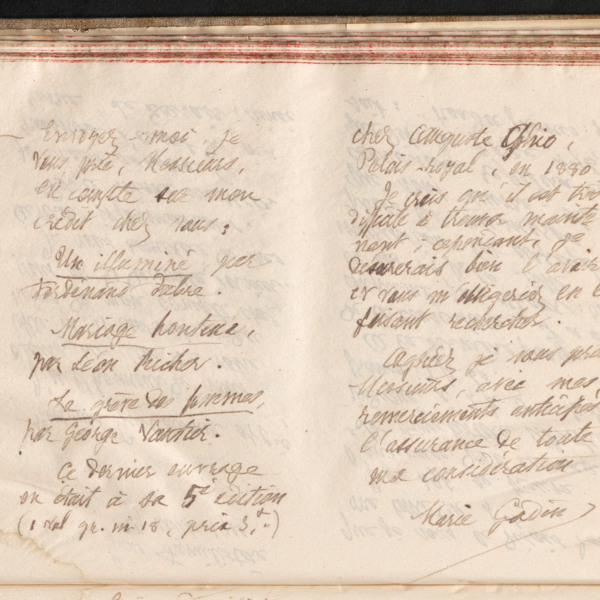 Envoyez-moi, je
vous prie, Messieurs,
en compte sur mon
crédit chez vous :
Un illuminé par
Ferdinand Fabre.
Mariage honteux,
par Léon Richer.
La grève des femmes,
par George Nardier.
Ce dernier ouvrage
en était à sa 5e édition
(1 vol gr. in 18, prix 3f.)
chez Auguste Ghio,
Palais-royal, en 1880
Je crois qu'il est très
difficile à trouver mainte
nant ; cependant, je
désirerais bien l'avoir
et vous m'obligeriez en le
faisant rechercher.
Agréez je vous prie
Messieurs, avec mes
remerciements anticipés
l'assurance de toute
ma considération
Marie Godin